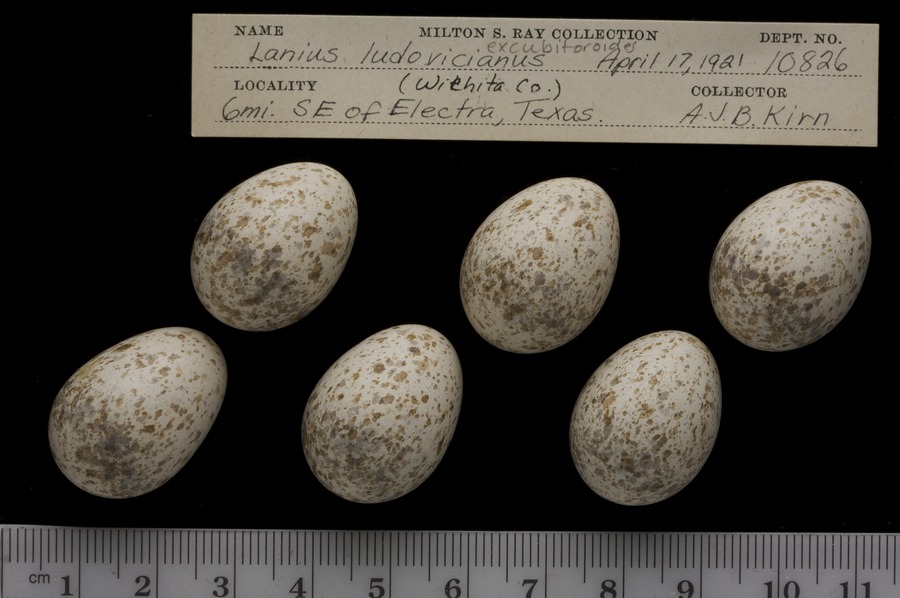 NAME MILTON S. RAY COLLECTION DEPT. NO.
excubitoroides
Lanius ludovicianus April 17, 1921 10826
LOCALITY (Wichita Co.) COLLECTOR
6mi. SE of Electra, Texas. A.J.B. Kirn
cm 1 2 3 4 5 6 7 8 9 10 11